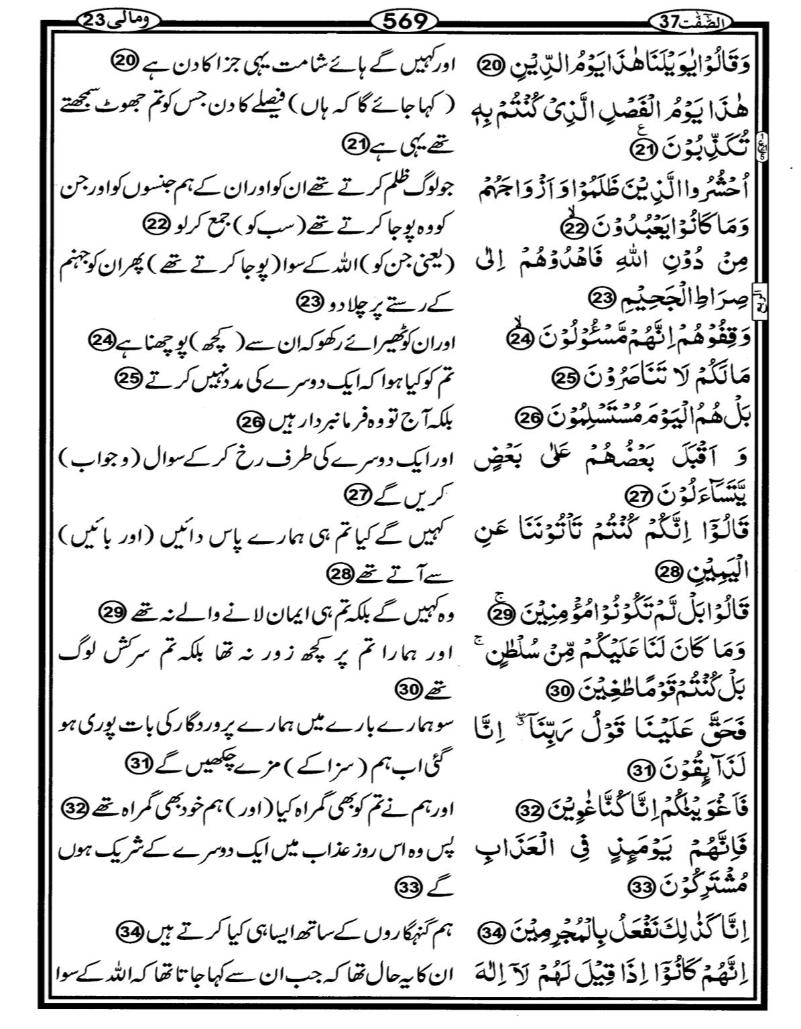 الصّٰٓفّٰت 37
569
ومالی 23
وَقَالُوۡا یٰوَیۡلَنَا هٰذَا یَوۡمُ الدِّیۡنِ 20
هٰذَا یَوۡمُ الۡفَصۡلِ الَّذِیۡ کُنۡتُمۡ بِهٖ
تُکَذِّبُوۡنَ 21 ع
اُحۡشُرُوا الَّذِیۡنَ ظَلَمُوۡا وَ اَزۡوَاجَهُمۡ
وَمَا کَانُوۡا یَعۡبُدُوۡنَ 22 ۙ
مِنۡ دُوۡنِ اللهِ فَاهۡدُوۡهُمۡ اِلٰی
صِرَاطِ الۡجَحِیۡمِ 23
الربع
وَقِفُوۡهُمۡ اِنَّهُمۡ مَّسۡـُٔوۡلُوۡنَ 24 ۙ
مَا لَکُمۡ لَا تَنَاصَرُوۡنَ 25
بَلۡ هُمُ الۡیَوۡمَ مُسۡتَسۡلِمُوۡنَ 26
وَ اَقۡبَلَ بَعۡضُهُمۡ عَلٰی بَعۡضٍ
یَّتَسَآءَلُوۡنَ 27
قَالُوۡۤا اِنَّکُمۡ کُنۡتُمۡ تَاۡتُوۡنَنَا عَنِ
الۡیَمِیۡنِ 28
قَالُوۡا بَلۡ لَّمۡ تَکُوۡنُوۡا مُؤۡمِنِیۡنَ 29 ۚ
وَمَا کَانَ لَنَا عَلَیۡکُمۡ مِّنۡ سُلۡطٰنٍ ۚ
بَلۡ کُنۡتُمۡ قَوۡمًا طٰغِیۡنَ 30
فَحَقَّ عَلَیۡنَا قَوۡلُ رَبِّنَاۤ ۖ اِنَّا
لَذَآئِقُوۡنَ 31
فَاَغۡوَیۡنٰکُمۡ اِنَّا کُنَّا غٰوِیۡنَ 32
فَاِنَّهُمۡ یَوۡمَئِذٍ فِی الۡعَذَابِ
مُشۡتَرِکُوۡنَ 33
اِنَّا کَذٰلِکَ نَفۡعَلُ بِالۡمُجۡرِمِیۡنَ 34
اِنَّهُمۡ کَانُوۡۤا اِذَا قِیۡلَ لَهُمۡ لَاۤ اِلٰهَ
اور کہیں گے ہائے شامت یہی جزا کا دن ہے 20
(کہا جائے گا کہ ہاں) فیصلے کا دن جس کو تم جھوٹ سمجھتے
تھے یہی ہے 21
جو لوگ ظلم کرتے تھے ان کو اور ان کے ہم جنسوں کو اور جن
کو وہ پوجا کرتے تھے (سب کو) جمع کرلو 22
(یعنی جن کو) اللہ کے سوا (پوجا کرتے تھے) پھر ان کو جہنم
کے رستے پر چلا دو 23
اور ان کو ٹھیرائے رکھو کہ ان سے (کچھ) پوچھنا ہے 24
تم کو کیا ہوا کہ ایک دوسرے کی مدد نہیں کرتے 25
بلکہ آج تو وہ فرمانبردار ہیں 26
اور ایک دوسرے کی طرف رخ کر کے سوال (و جواب)
کریں گے 27
کہیں گے کیا تم ہی ہمارے پاس دائیں (اور بائیں)
سے آتے تھے 28
وہ کہیں گے بلکہ تم ہی ایمان لانے والے نہ تھے 29
اور ہمارا تم پر کچھ زور نہ تھا بلکہ تم سرکش لوگ
تھے 30
سو ہمارے بارے میں ہمارے پروردگار کی بات پوری ہو
گئی اب ہم (سزا کے) مزے چکھیں گے 31
اور ہم نے تم کو بھی گمراہ کیا (اور) ہم خود بھی گمراہ تھے 32
پس وہ اس روز عذاب میں ایک دوسرے کے شریک ہوں
گے 33
ہم گنہگاروں کے ساتھ ایسا ہی کیا کرتے ہیں 34
ان کا یہ حال تھا کہ جب ان سے کہا جاتا تھا کہ اللہ کے سوا